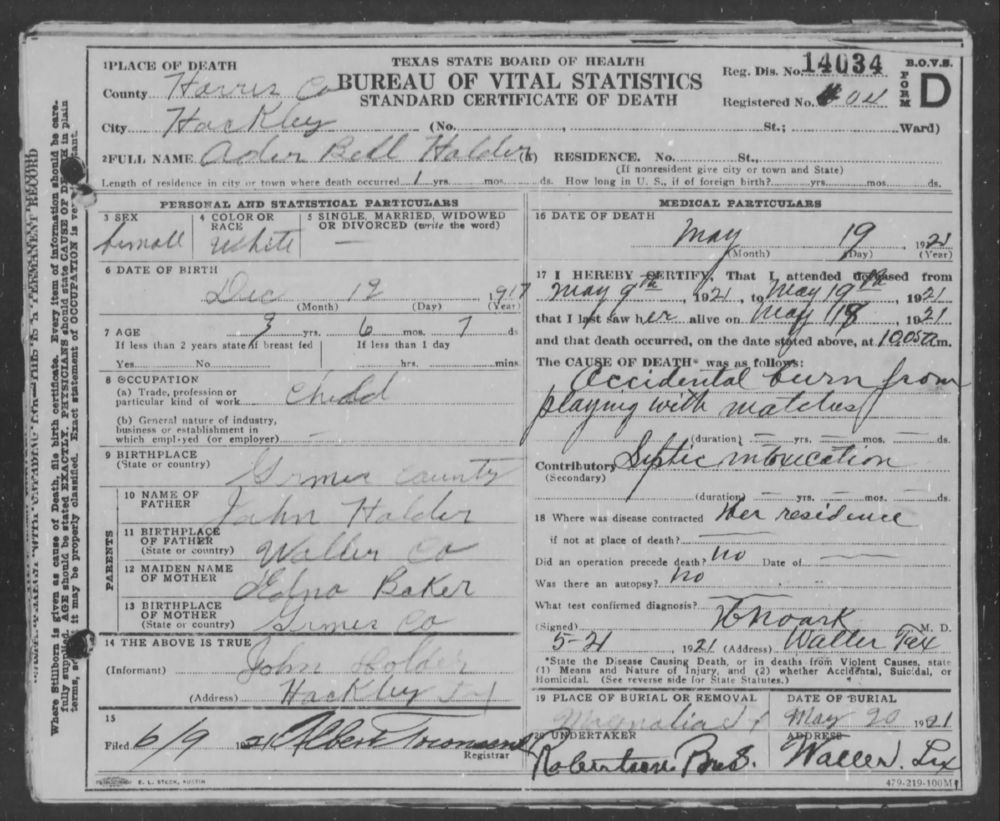 1PLACE OF DEATH
TEXAS STATE BOARD OF HEALTH
Reg. Dis. No. 14034
B.O.V.S.
FORM D
County Harris Co
BUREAU OF VITAL STATISTICS
STANDARD CERTIFICATE OF DEATH
Registered No. 04
City Hockley (No. , St.; Ward)
2FULL NAME Ader Bell Holder RESIDENCE. No. St.,
(If nonresident give city or town and State)
Length of residence in city or town where death occurred 1 yrs. mos. ds. How long in U. S., if of foreign birth? yrs. mos. ds.
PERSONAL AND STATISTICAL PARTICULARS
3 SEX
femall
4 COLOR OR RACE
White
5 SINGLE, MARRIED, WIDOWED
OR DIVORCED (write the word)
—
6 DATE OF BIRTH
Dec 12 1917
(Month) (Day) (Year)
7 AGE 3 yrs. 6 mos. 7 ds
If less than 2 years state if breast fed
If less than 1 day
Yes No hrs. mins.
8 OCCUPATION
(a) Trade, profession or
particular kind of work Child
(b) General nature of industry,
business or establishment in
which employed (or employer) —
9 BIRTHPLACE
(State or country) Grmes County
PARENTS
10 NAME OF
FATHER John Holder
11 BIRTHPLACE
OF FATHER
(State or country) Waller Co
12 MAIDEN NAME
OF MOTHER Edna Baker
13 BIRTHPLACE
OF MOTHER
(State or country) Grmes Co
14 THE ABOVE IS TRUE
(Informant) John Holder
(Address) Hockley Tex
15
Filed 6/9 1921 Albert Townsend
Registrar
MEDICAL PARTICULARS
16 DATE OF DEATH
May 19 1921
(Month) (Day) (Year)
17 I HEREBY CERTIFY, That I attended deceased from
May 9th, 1921, to May 19th, 1921
that I last saw her alive on May 18, 1921
and that death occurred, on the date stated above, at 10.05 a.m.
The CAUSE OF DEATH* was as follows:
Accidental burn from
playing with matches
(duration) — yrs. — mos. — ds.
Contributory Septic intoxication
(Secondary)
(duration) — yrs. — mos. — ds.
18 Where was disease contracted Her residence
if not at place of death?
Did an operation precede death? no Date of
Was there an autopsy? no
What test confirmed diagnosis?
(Signed) M. D.
5-21 1921 (Address) Waller Tex
*State the Disease Causing Death, or in deaths from Violent Causes, state
(1) Means and Nature of Injury, and (2) whether Accidental, Suicidal, or
Homicidal. (See reverse side for State Statutes.)
19 PLACE OF BURIAL OR REMOVAL
Magnolia Tx
DATE OF BURIAL
May 20 1921
20 UNDERTAKER
Robertson Bros.
ADDRESS
Waller. Tex
E. L. STECK, AUSTIN
479-219-100M
Where Stillborn is given as cause of Death, file birth certificate. Every item of information should be care-
fully supplied. AGE should be stated EXACTLY. PHYSICIANS should state CAUSE OF DEATH in plain
it may be properly classified. Exact statement of OCCUPATION is